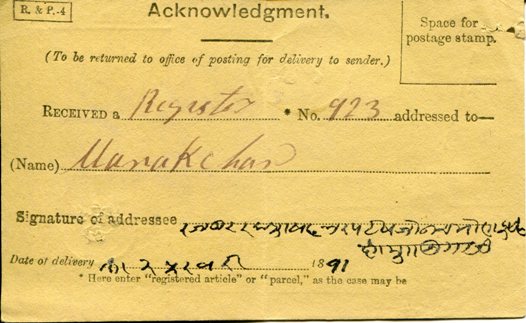 R. & P.-4
Acknowledgment.
Space for
postage stamp.
(To be returned to office of posting for delivery to sender.)
RECEIVED a Register * No. 923 addressed to—
(Name) Manakchan
Signature of addressee
Date of delivery 1891
* Here enter "registered article" or "parcel," as the case may be